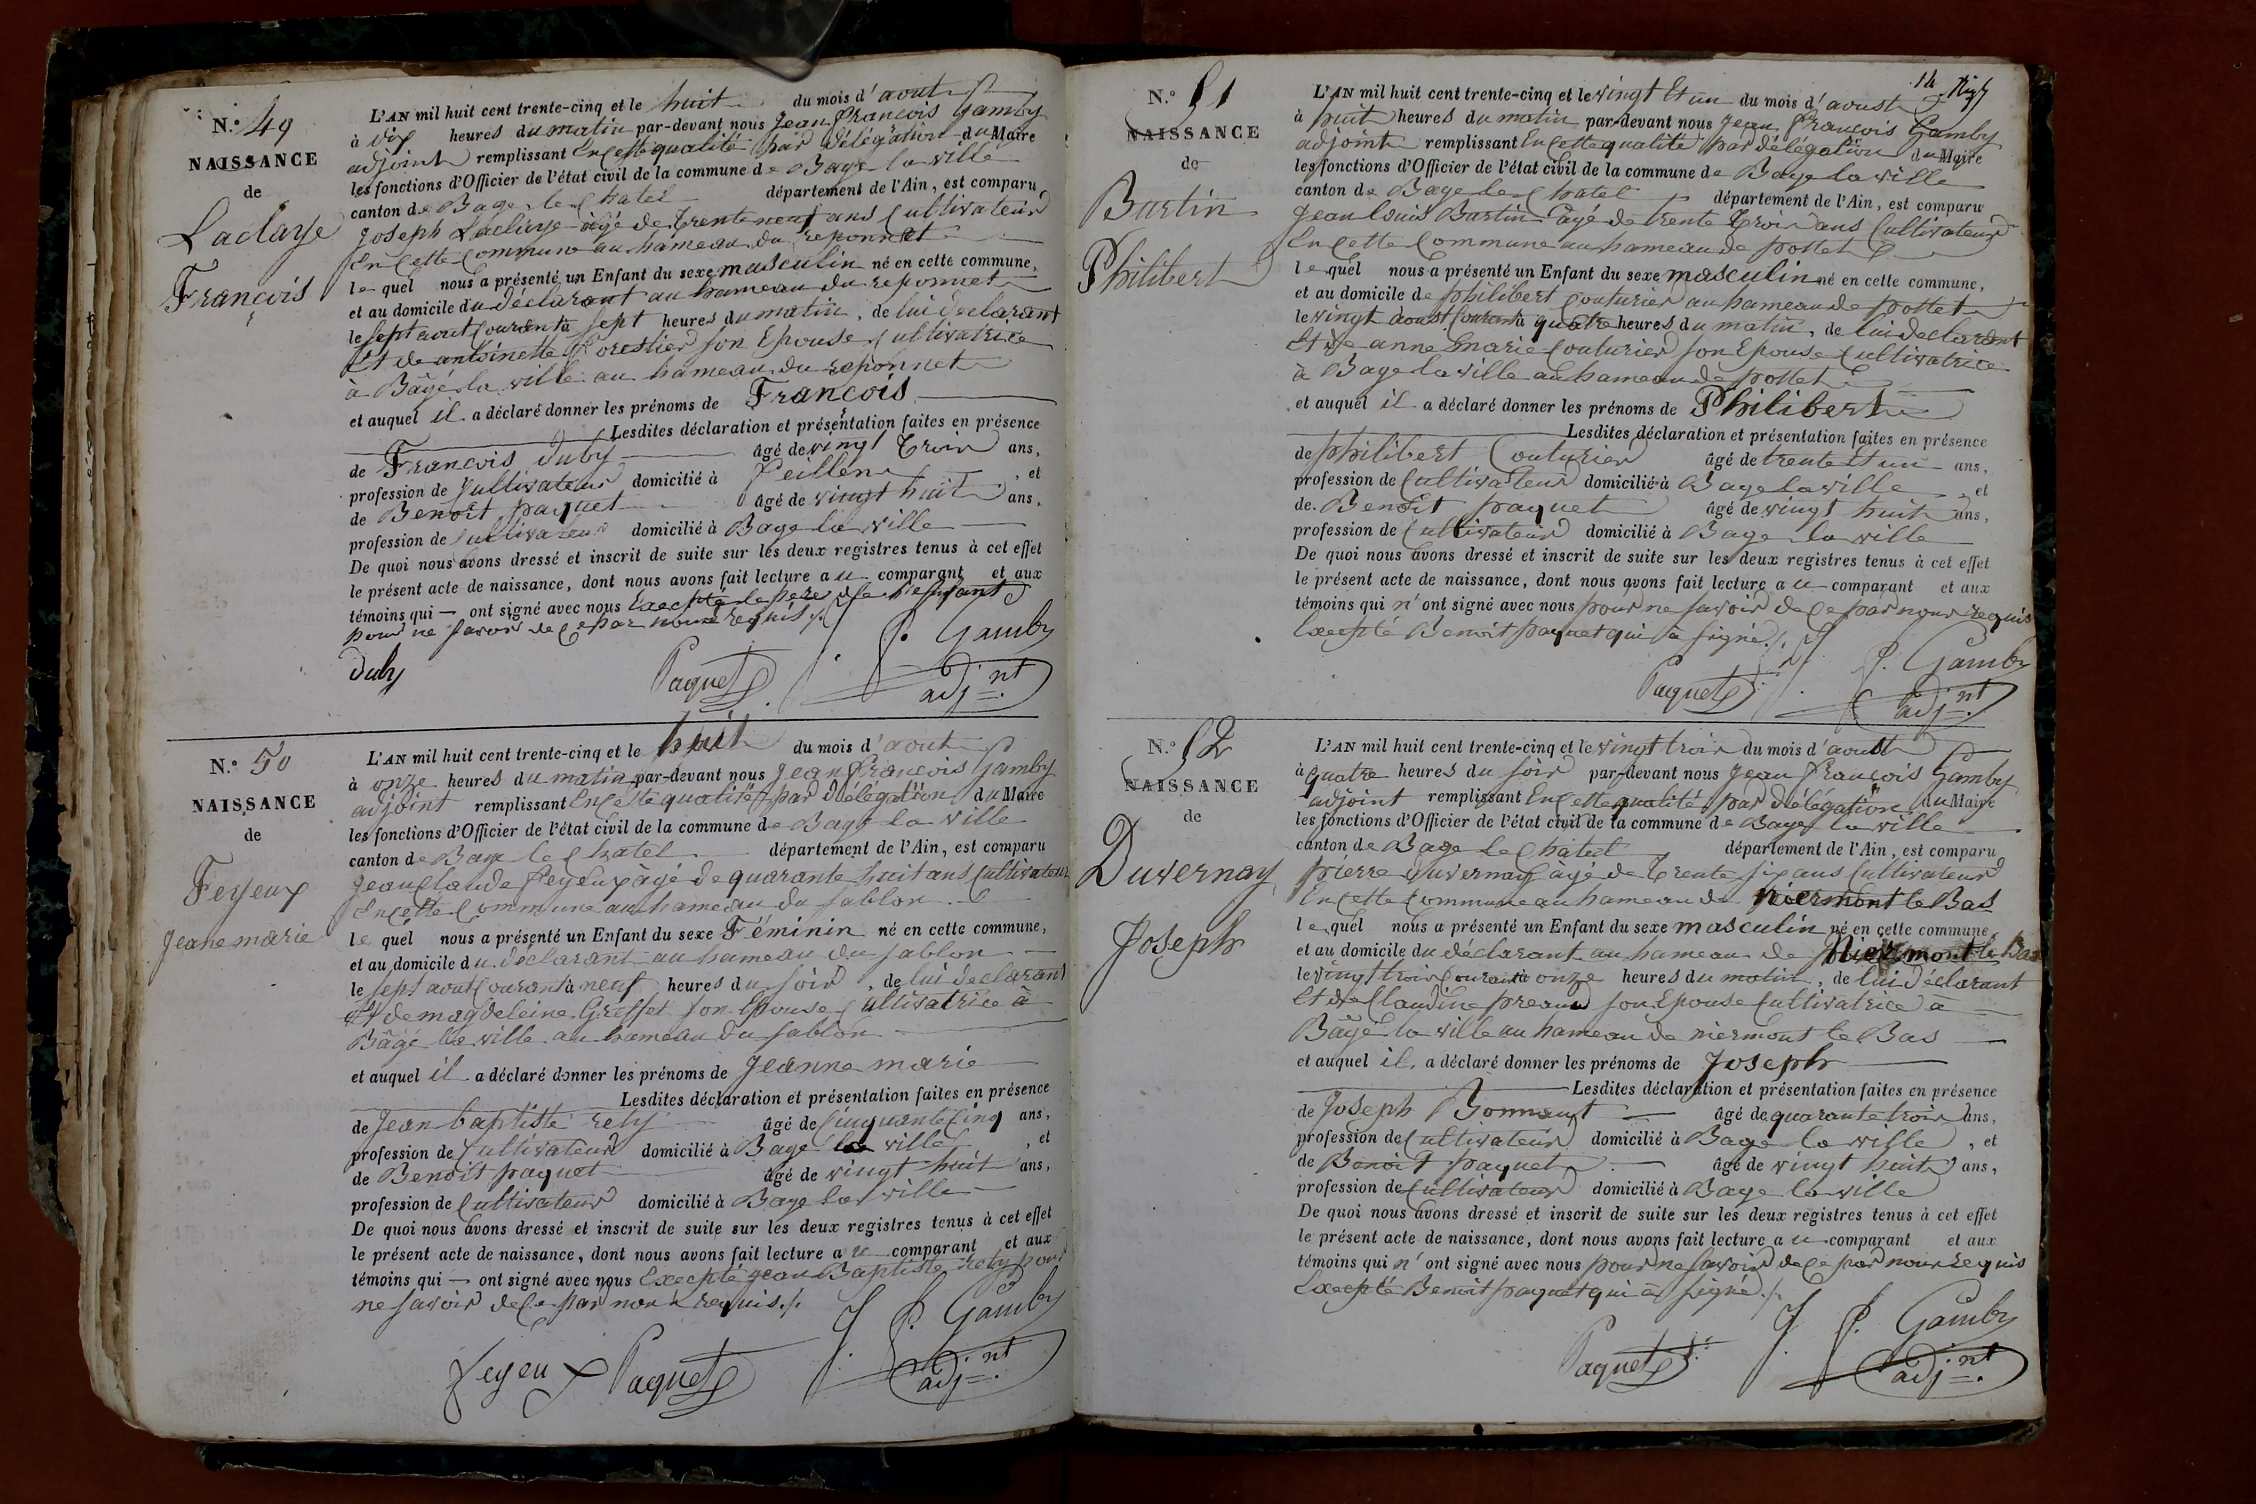 N.º 49
NAISSANCE
de
Laclaye
François
L'AN mil huit cent trente-cinq et le huit du mois d'aout
à dix heures du matin par-devant nous jean françois Gamby
adjoint remplissant En cette qualité par délégation du Maire
les fonctions d'Officier de l'état civil de la commune de Bage la ville
canton de Bage le Chatel département de l'Ain, est comparu
joseph Laclaye âgé de trente neuf ans Cultivateur
En Cette Commune au hameau du reponnet
le quel nous a présenté un Enfant du sexe masculin né en cette commune,
et au domicile du déclarant au hameau du reponnet
le sept aout Courant à sept heures du matin, de lui déclarant
Et de antoinette forestier son Epouse Cultivatrice
à Bâgé la ville au hameau du reponnet
et auquel il a déclaré donner les prénoms de François
Lesdites déclaration et présentation faites en présence
de François Duby âgé de vingt trois ans,
profession de Cultivateur domicilié à feillens, et
de Benoit paquet âgé de vingt huit ans,
profession de Cultivateur domicilié à Bage la ville
De quoi nous avons dressé et inscrit de suite sur les deux registres tenus à cet effet
le présent acte de naissance, dont nous avons fait lecture au comparant et aux
témoins qui — ont signé avec nous Excepté le pere de l'enfant
pour ne savoir de ce par nous requis ./.
Duby Paquet J. f. Gamby
adj.nt
N.º 50
NAISSANCE
de
Feyeux
Jeane marie
L'AN mil huit cent trente-cinq et le huit du mois d'aout
à onze heures du matin par-devant nous jean françois Gamby
adjoint remplissant En Cette qualité par délégation du Maire
les fonctions d'Officier de l'état civil de la commune de Bage la ville
canton de Bage le Chatel département de l'Ain, est comparu
jean Claude feyeux âgé de quarante huit ans Cultivateur
En Cette Commune au hameau du sablon
le quel nous a présenté un Enfant du sexe Féminin né en cette commune,
et au domicile du déclarant au hameau du sablon
le sept aout Courant à neuf heures du soir, de lui déclarant
Et de magdeleine Greffet son Epouse Cultivatrice à
Bâgé la ville au hameau du sablon
et auquel il a déclaré donner les prénoms de jeanne marie
Lesdites déclaration et présentation faites en présence
de jean baptiste rety âgé de Cinquante Cinq ans,
profession de Cultivateur domicilié à Bagé la ville, et
de Benoit paquet âgé de vingt huit ans,
profession de Cultivateur domicilié à Bage la ville
De quoi nous avons dressé et inscrit de suite sur les deux registres tenus à cet effet
le présent acte de naissance, dont nous avons fait lecture au comparant et aux
témoins qui — ont signé avec nous Excepté jean Baptiste rety pour
ne savoir de Ce par nous requis ./.
feyeux Paquet J. f. Gamby
adj.nt
14
N.º 51
NAISSANCE
de
Bartin
Philibert
L'AN mil huit cent trente-cinq et le vingt Et un du mois d'aoust
à huit heures du matin par-devant nous jean françois Gamby
adjoint remplissant En Cette qualité par délégation du Maire
les fonctions d'Officier de l'état civil de la commune de Bage la ville
canton de Bage le Chatel département de l'Ain, est comparu
jean louis Bartin âgé de trente trois ans Cultivateur
En Cette Commune au hameau de pottet
le quel nous a présenté un Enfant du sexe masculin né en cette commune,
et au domicile de philibert Couturier au hameau de pottet
le vingt aoust Courant à quatre heures du matin, de lui declarant
Et de anne marie Couturier son Epouse Cultivatrice
à Bage la ville au hameau de pottet
et auquel il a déclaré donner les prénoms de Philibert
Lesdites déclaration et présentation faites en présence
de philibert Couturier âgé de trente Et un ans,
profession de Cultivateur domicilié à Bage la ville, et
de Benoit paquet âgé de vingt huit ans,
profession de Cultivateur domicilié à Bage la ville
De quoi nous avons dressé et inscrit de suite sur les deux registres tenus à cet effet
le présent acte de naissance, dont nous avons fait lecture au comparant et aux
témoins qui n'ont signé avec nous pour ne savoir de Ce par nous requis
Excepté Benoit paquet qui a signé ./.
Paquet J. f. Gamby
adj.nt
N.º 52
NAISSANCE
de
Duvernay
Joseph
L'AN mil huit cent trente-cinq et le vingt trois du mois d'aoust
à quatre heures du soir par-devant nous jean françois Gamby
adjoint remplissant En Cette qualité par délégation du Maire
les fonctions d'Officier de l'état civil de la commune de Bage la ville
canton de Bage le Châtel département de l'Ain, est comparu
pierre duvernay âgé de trente six ans Cultivateur
En Cette Commune au hameau de niermont le Bas
le quel nous a présenté un Enfant du sexe masculin né en cette commune,
et au domicile du déclarant au hameau de Niermont le Bas
le vingt trois Courant à onze heures du matin, de lui déclarant
Et de Claudine preaud son Epouse Cultivatrice à
Bâgé la ville au hameau de niermont le Bas
et auquel il a déclaré donner les prénoms de Joseph
Lesdites déclaration et présentation faites en présence
de Joseph Bonnant âgé de quarante trois ans,
profession de Cultivateur domicilié à Bage la ville, et
de Benoit paquet âgé de vingt huit ans,
profession de Cultivateur domicilié à Bage la ville
De quoi nous avons dressé et inscrit de suite sur les deux registres tenus à cet effet
le présent acte de naissance, dont nous avons fait lecture au comparant et aux
témoins qui n'ont signé avec nous pour ne savoir de Ce par nous requis
Excepté Benoit paquet qui a signé ./.
Paquet J. f. Gamby
adj.nt